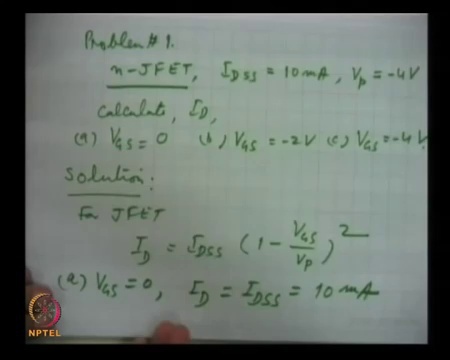 Problem # 1.
n-JFET, I_DSS = 10 mA, V_P = -4V
Calculate, I_D,
(a) V_GS = 0 (b) V_GS = -2V (c) V_GS = -4V.
Solution:
For JFET
I_D = I_DSS (1 - V_GS/V_P)^2
(a) V_GS = 0, I_D = I_DSS = 10 mA
NPTEL